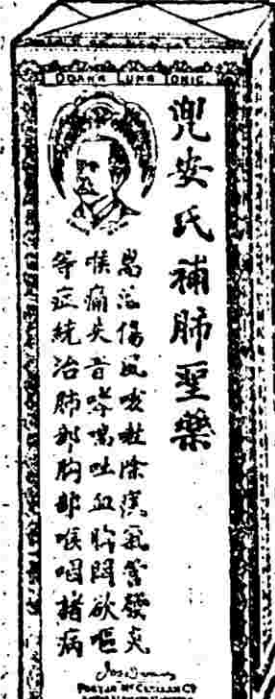 DOANS LUNG TONIC
兜安氏補肺聖藥
傷風咳嗽除痰氣管發炎
喉痛失音哮喘吐血胸悶欲嘔
等症統治肺部胸部喉咽諸病
FOSTER McCLELLAN Co